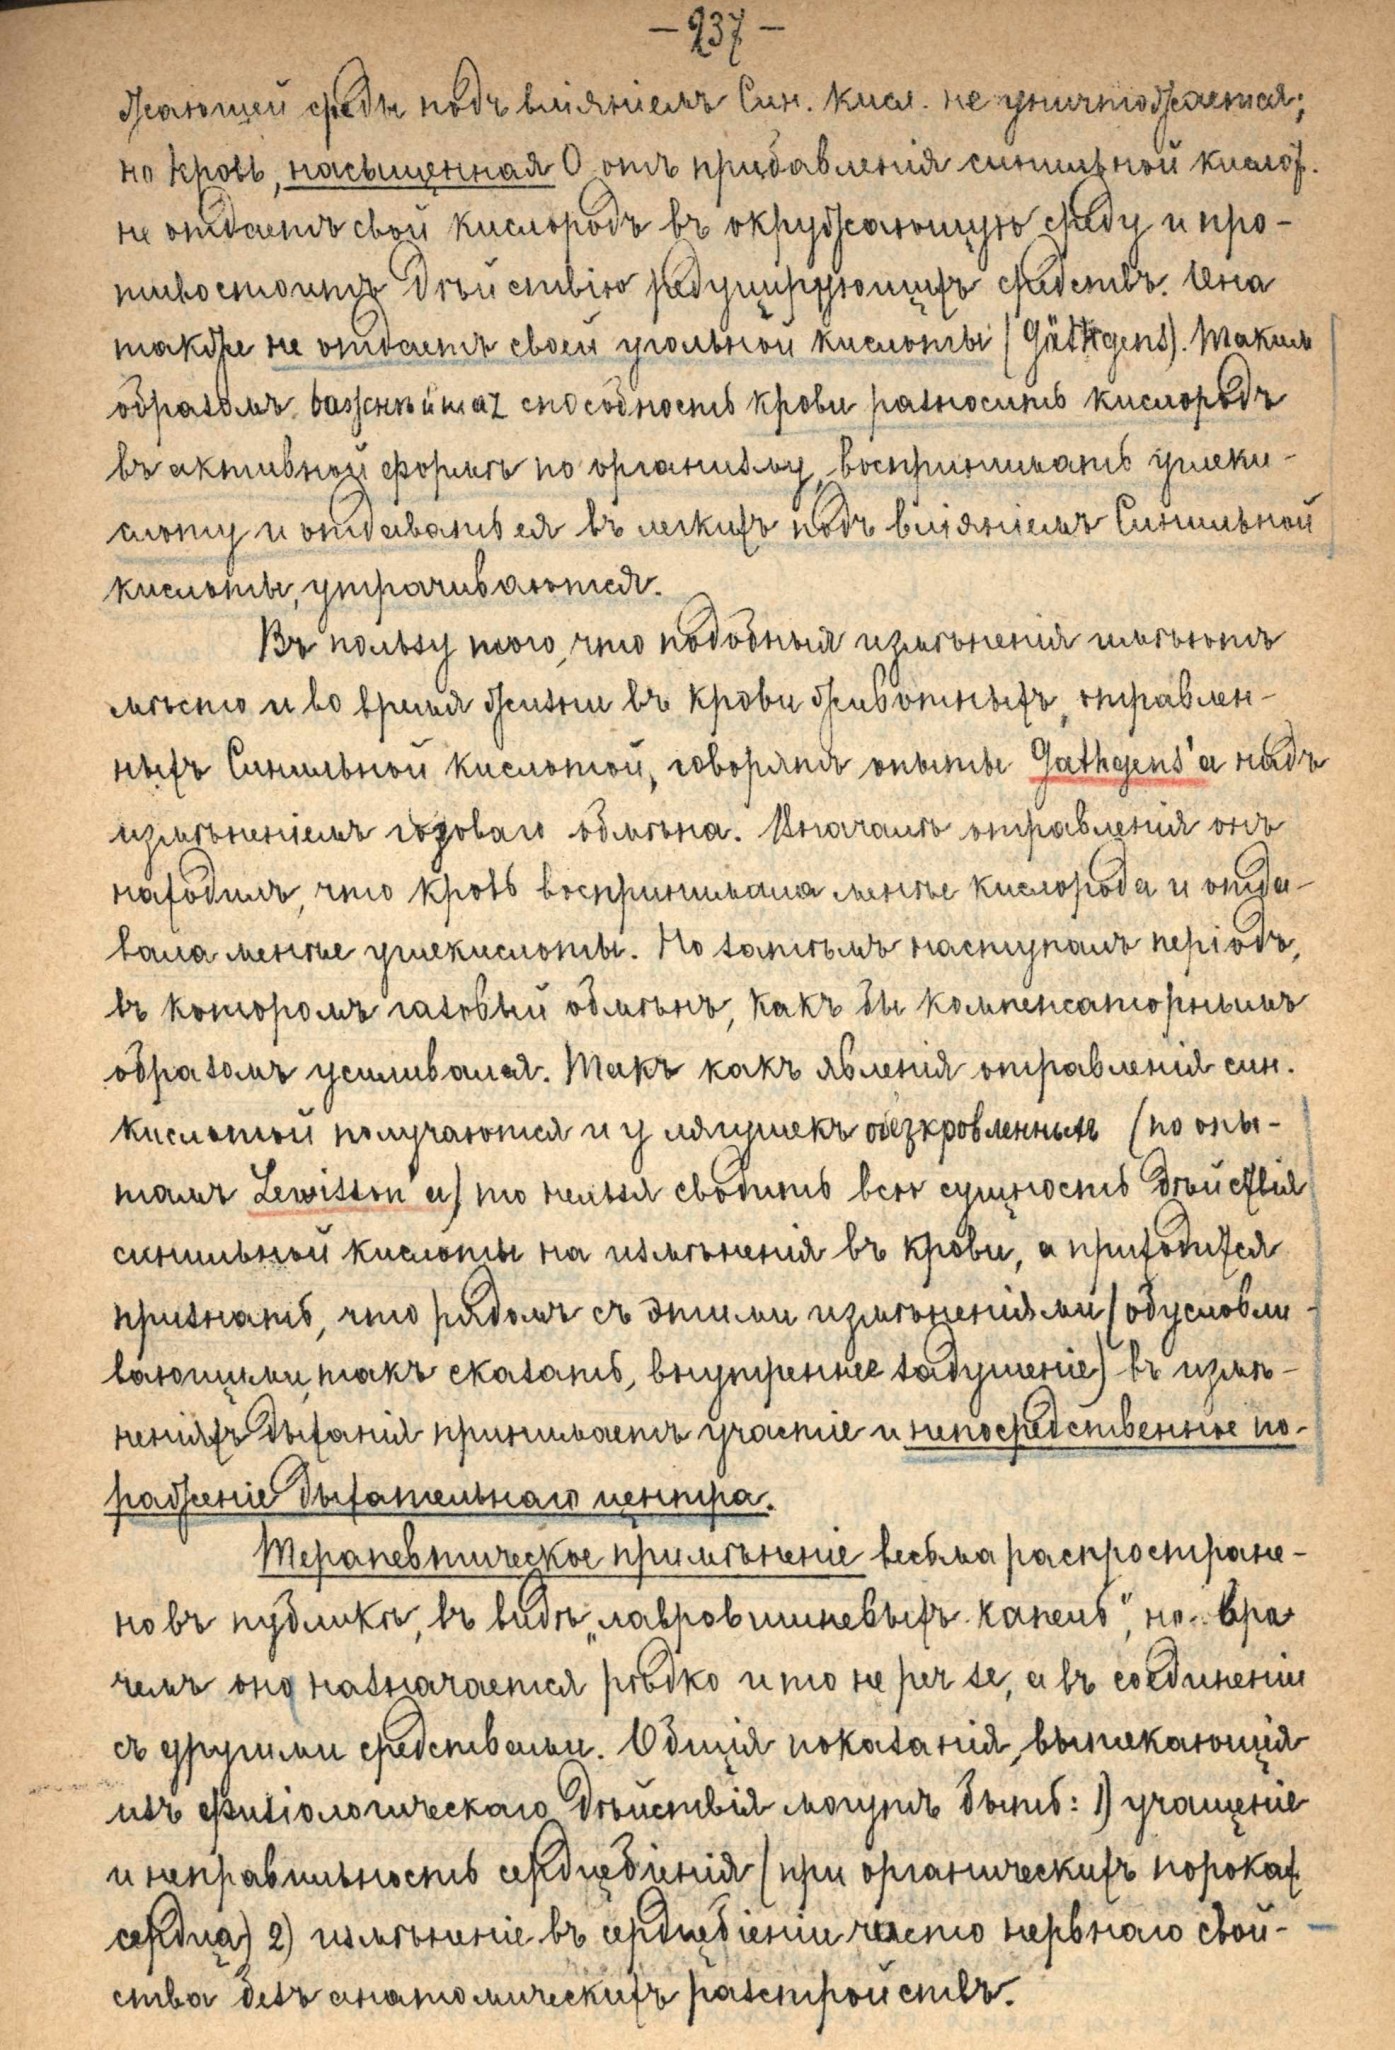 — 237 —
жающей среды подъ вліяніемъ Син. кисл. не уничтожается;
но кровь, насыщенная О отъ прибавленія синильной кислот.
не отдаетъ свой кислородъ въ окружающую среду и про-
тивостоитъ дѣйствію редуцирующихъ средствъ. Она
также не отдаетъ своей угольной кислоты (Gäthgens). Такимъ
образомъ важнѣйшая способность крови разносить кислородъ
въ активной формѣ по организму, воспринимать углеки-
слоту и отдавать ея въ легкихъ подъ вліяніемъ Синильной
кислоты, утрачиваются.
Въ пользу того, что подобныя измѣненія имѣютъ
мѣсто и во время жизни въ крови животныхъ, отравлен-
ныхъ Синильной кислотой, говорятъ опыты Gathgens'а надъ
измѣненіемъ газоваго обмѣна. Вначалѣ отравленія онъ
находилъ, что кровь воспринимала менѣе кислорода и отда-
вала менѣе углекислоты. Но затѣмъ наступалъ періодъ,
въ которомъ газовый обмѣнъ, какъ бы компенсаторнымъ
образомъ усиливался. Такъ какъ явленія отравленія син.
кислотой получаются и у лягушекъ обезкровленныхъ (по опы-
тамъ Lewisson'а) то нельзя сводить всю сущность дѣйствія
синильной кислоты на измѣненія въ крови, а приходится
признать, что рядомъ съ этими измѣненіями (обусловли-
вающими, такъ сказать, внутреннее задушеніе) въ измѣ-
неніяхъ дыханія принимаетъ участіе и непосредственное по-
раженіе дыхательнаго центра.
Терапевтическое примѣненіе весьма распростране-
но въ публикѣ, въ видѣ „лавровишневыхъ капель", но вра
чемъ оно назначается рѣдко и то не per se, а въ соединеніи
съ другими средствами. Общія показанія, вытекающія
изъ физіологическаго дѣйствія могутъ быть: 1) учащеніе
и неправильность сердцебіенія (при органическихъ пороках
сердца) 2) измѣненіе въ сердцебіеніи чисто нервнаго свой-
ства безъ анатомическихъ разстройствъ.